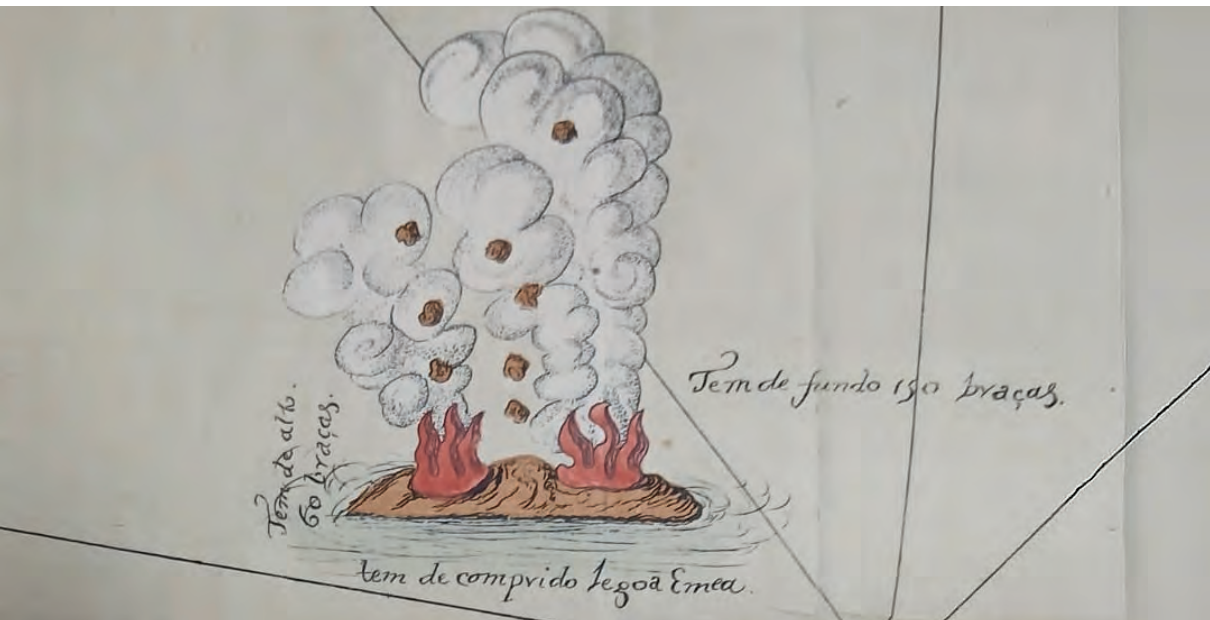 Tem de alto.
60 braças.
Tem de fundo 150 braças.
tem de comprido legoa Emea.